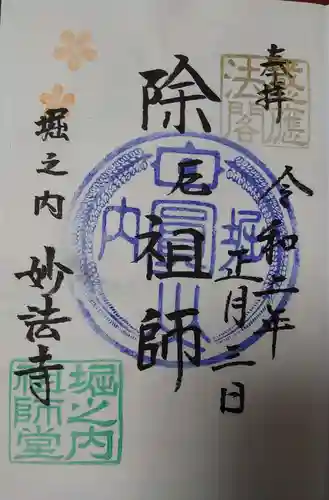 奉拝
令和二年
正月三日
除厄祖師
堀之内
妙法寺
堀
内
堀之内
祖師堂